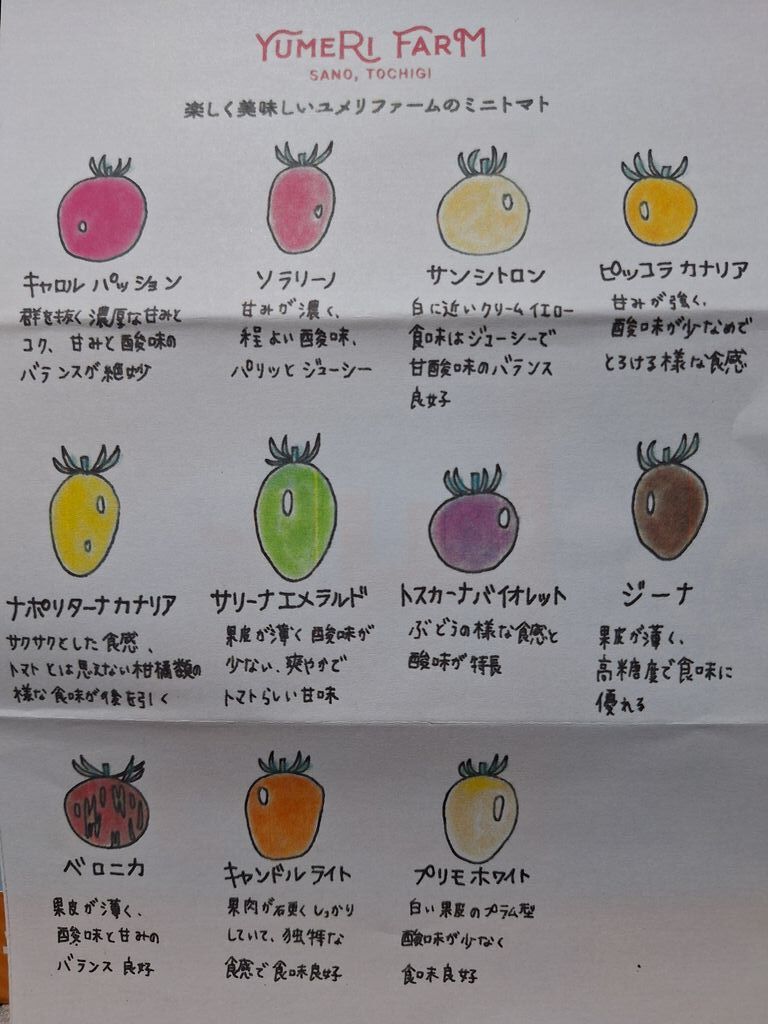 YUMERI FARM
SANO, TOCHIGI
楽しく美味しいユメリファームのミニトマト
キャロル パッション
群を抜く濃厚な甘みと
コク、甘みと酸味の
バランスが絶妙
ソラリーノ
甘みが濃く、
程よい酸味、
パリッとジューシー
サンシトロン
白に近いクリームイエロー
食味はジューシーで
甘酸味のバランス
良好
ピッコラ カナリア
甘みが強く、
酸味が少なめで
とろける様な食感
ナポリターナカナリア
サクサクとした食感、
トマトとは思えない柑橘類の
様な食味が後を引く
サリーナエメラルド
果皮が薄く酸味が
少ない、爽やかで
トマトらしい甘味
トスカーナバイオレット
ぶどうの様な食感と
酸味が特長
ジーナ
果皮が薄く、
高糖度で食味に
優れる
ベロニカ
果皮が薄く、
酸味と甘みの
バランス良好
キャンドルライト
果肉が硬くしっかり
していて、独特な
食感で食味良好
プリモホワイト
白い果皮のプラム型
酸味が少なく
食味良好